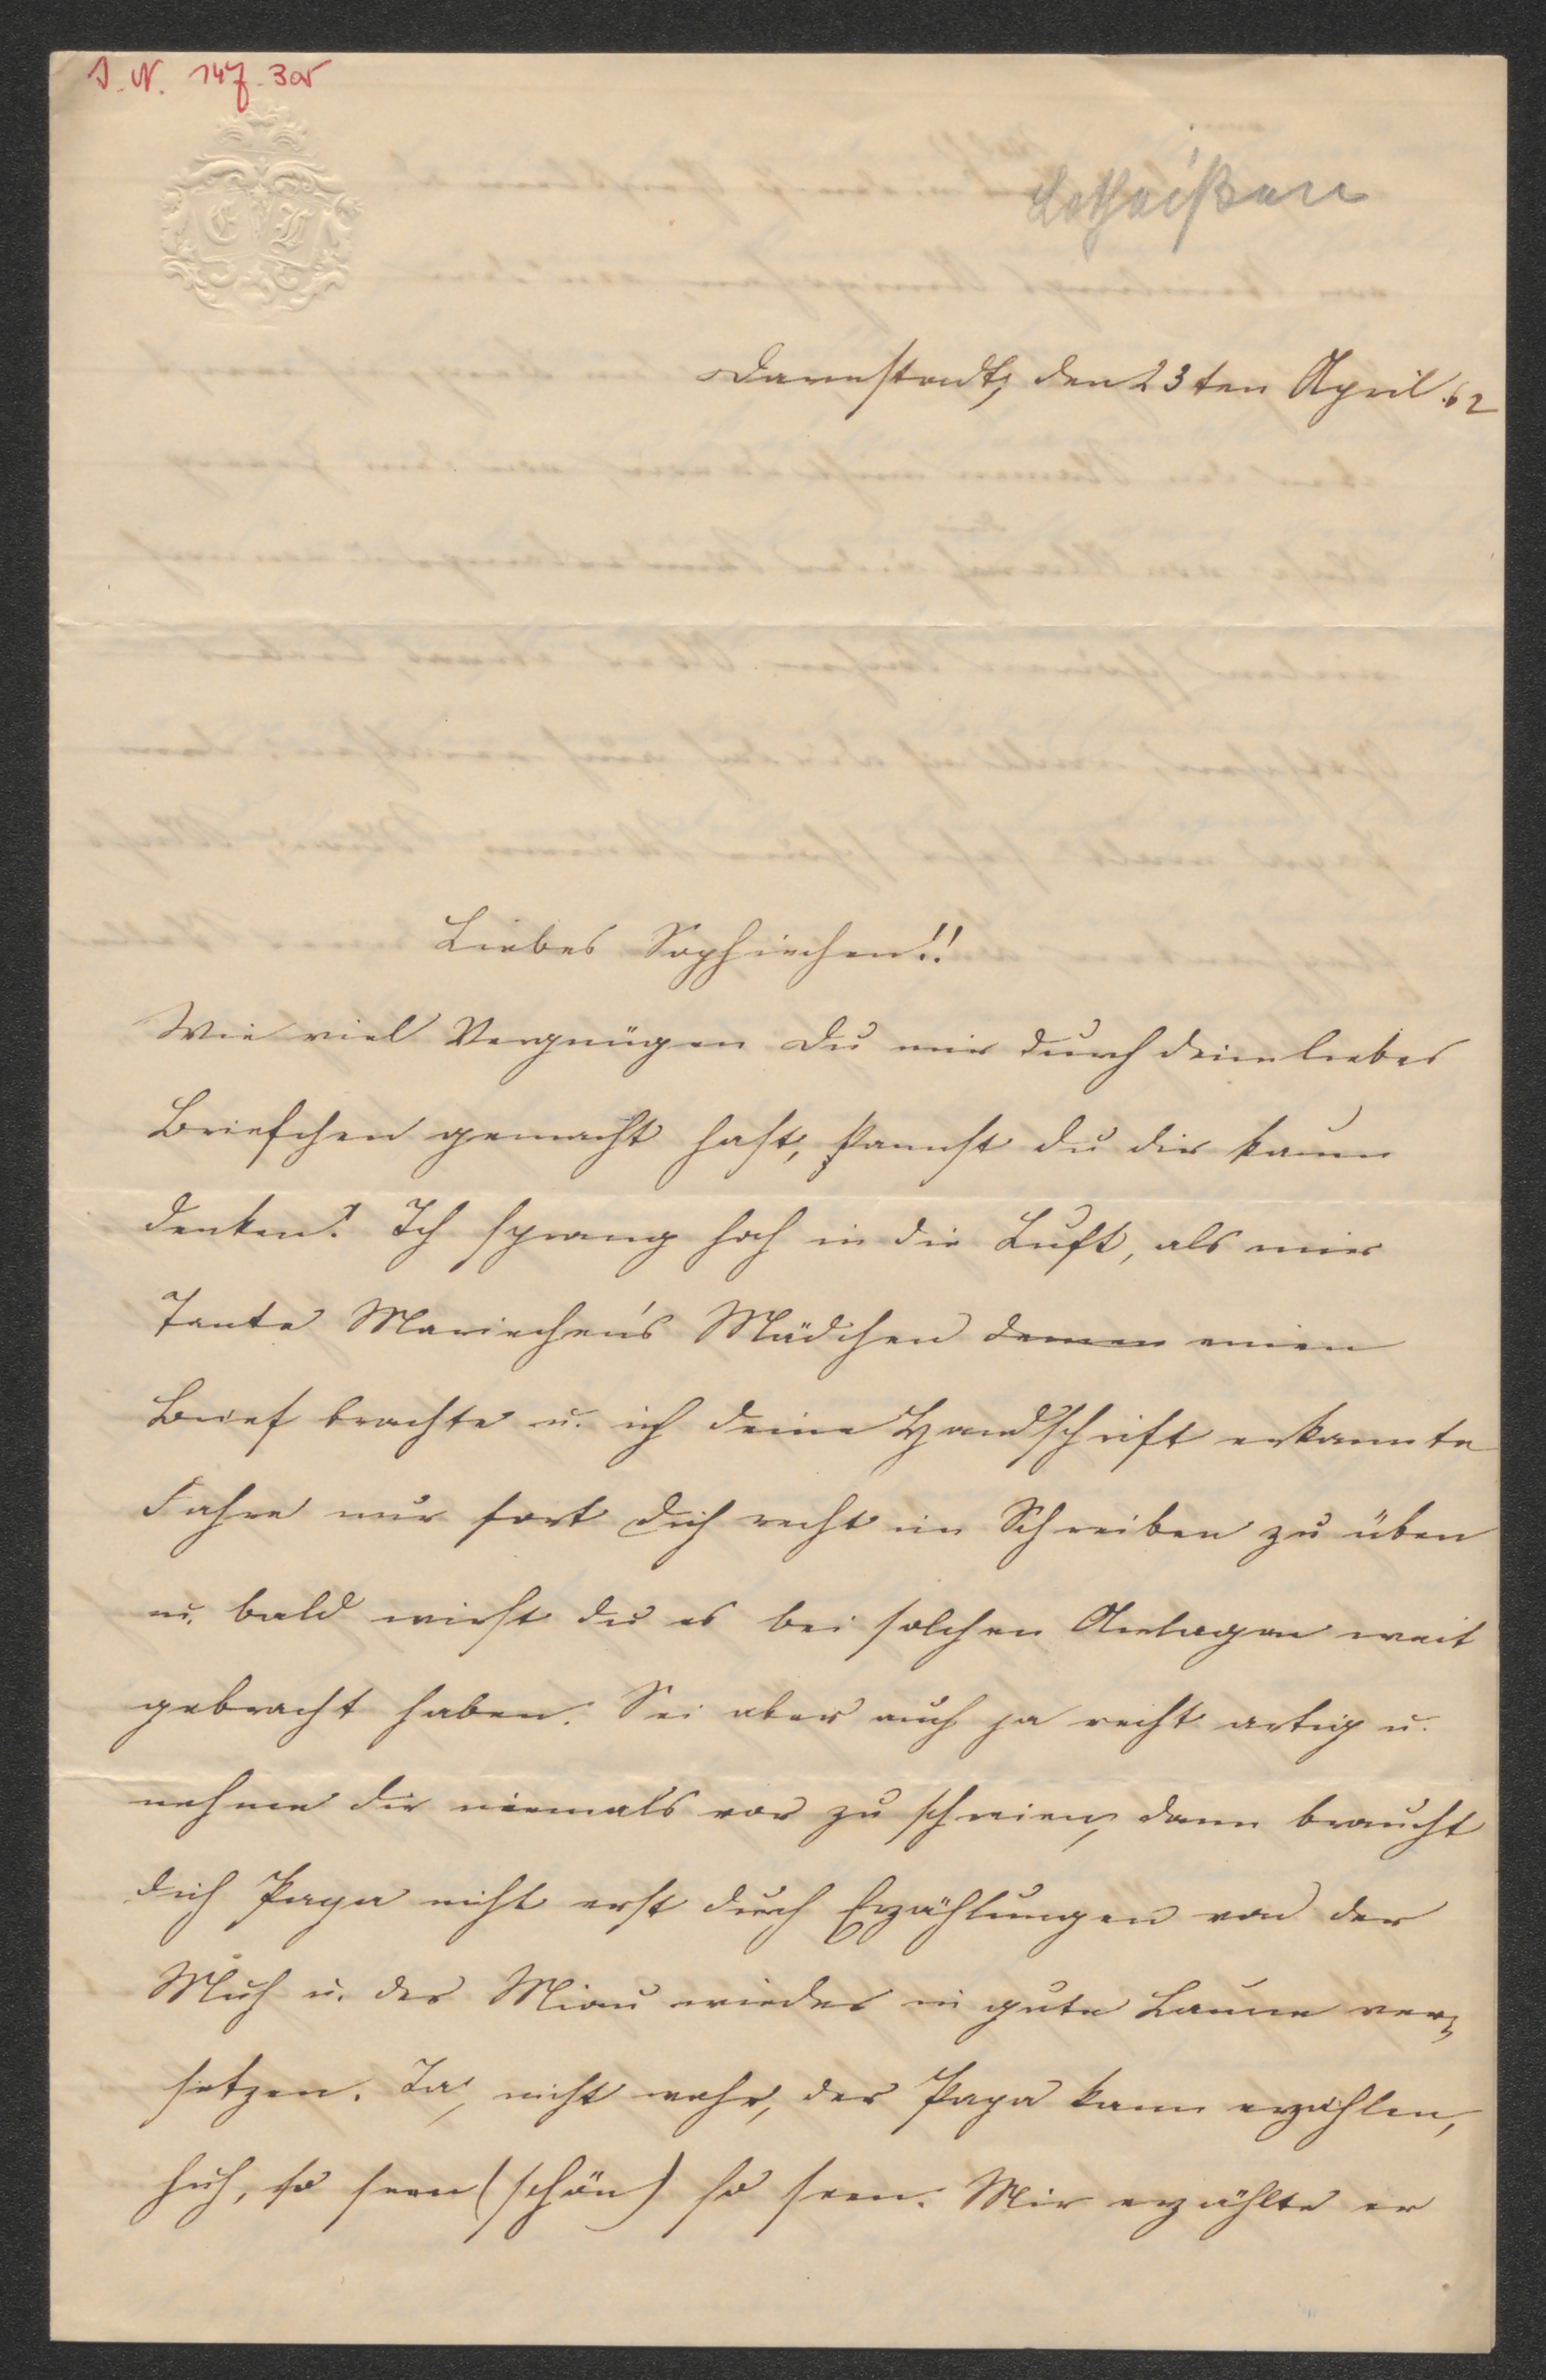 I. N. 147.305
E L
Lotheißen
Darmstadt, den 23ten April 62
Liebes Sophiechen!!
Wie viel Vergnügen Du mir durch dein liebes
Briefchen gemacht hast, kannst du dir kaum
denken! Ich sprang hoch in die Luft, als mir
Tante Mariechen's Mädchen einen
Brief brachte u. ich deine Handschrift erkannte
Fahre nur fort dich recht im Schreiben zu üben
u. bald wirst du es bei solchen Anlagen weit
gebracht haben. Sei aber auch ja recht artig u.
nehme dir niemals vor zu schreien, dann braucht
dich Papa nicht erst durch Erzählungen von der
Muh u. der Miau wieder in gute Laune ver-
setzen. Ja, nicht wahr, der Papa kann erzählen,
huh, so seen (schön) so seen. Mir erzählte er